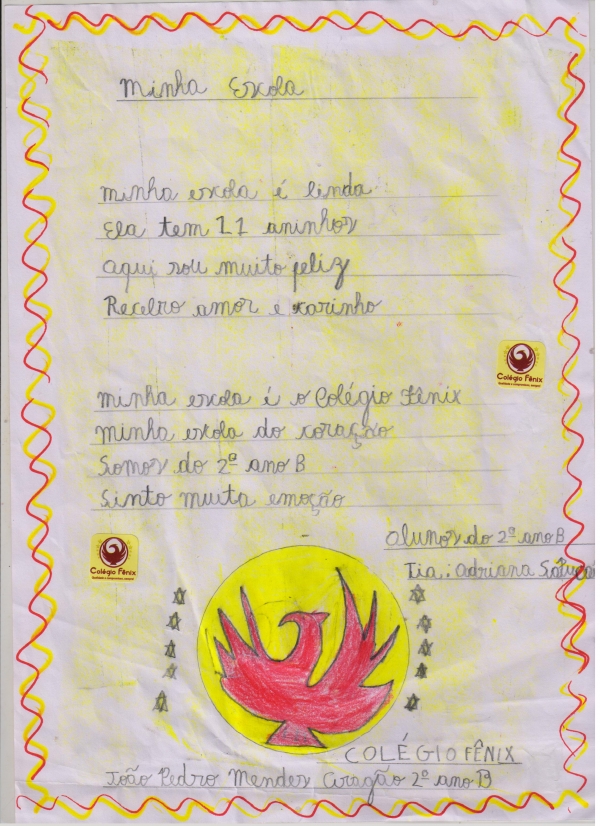 Minha Escola
Minha escola é linda
Ela tem 11 aninhos
Aqui sou muito feliz
Recebo amor e carinho
Colégio Fênix
Minha escola é o Colégio Fênix
Minha escola do coração
Somos do 2º ano B
Sinto muita emoção
Alunos do 2º ano B
Colégio Fênix
Tia.: Adriana
COLÉGIO FÊNIX
João Pedro Mendes Aragão 2º ano B